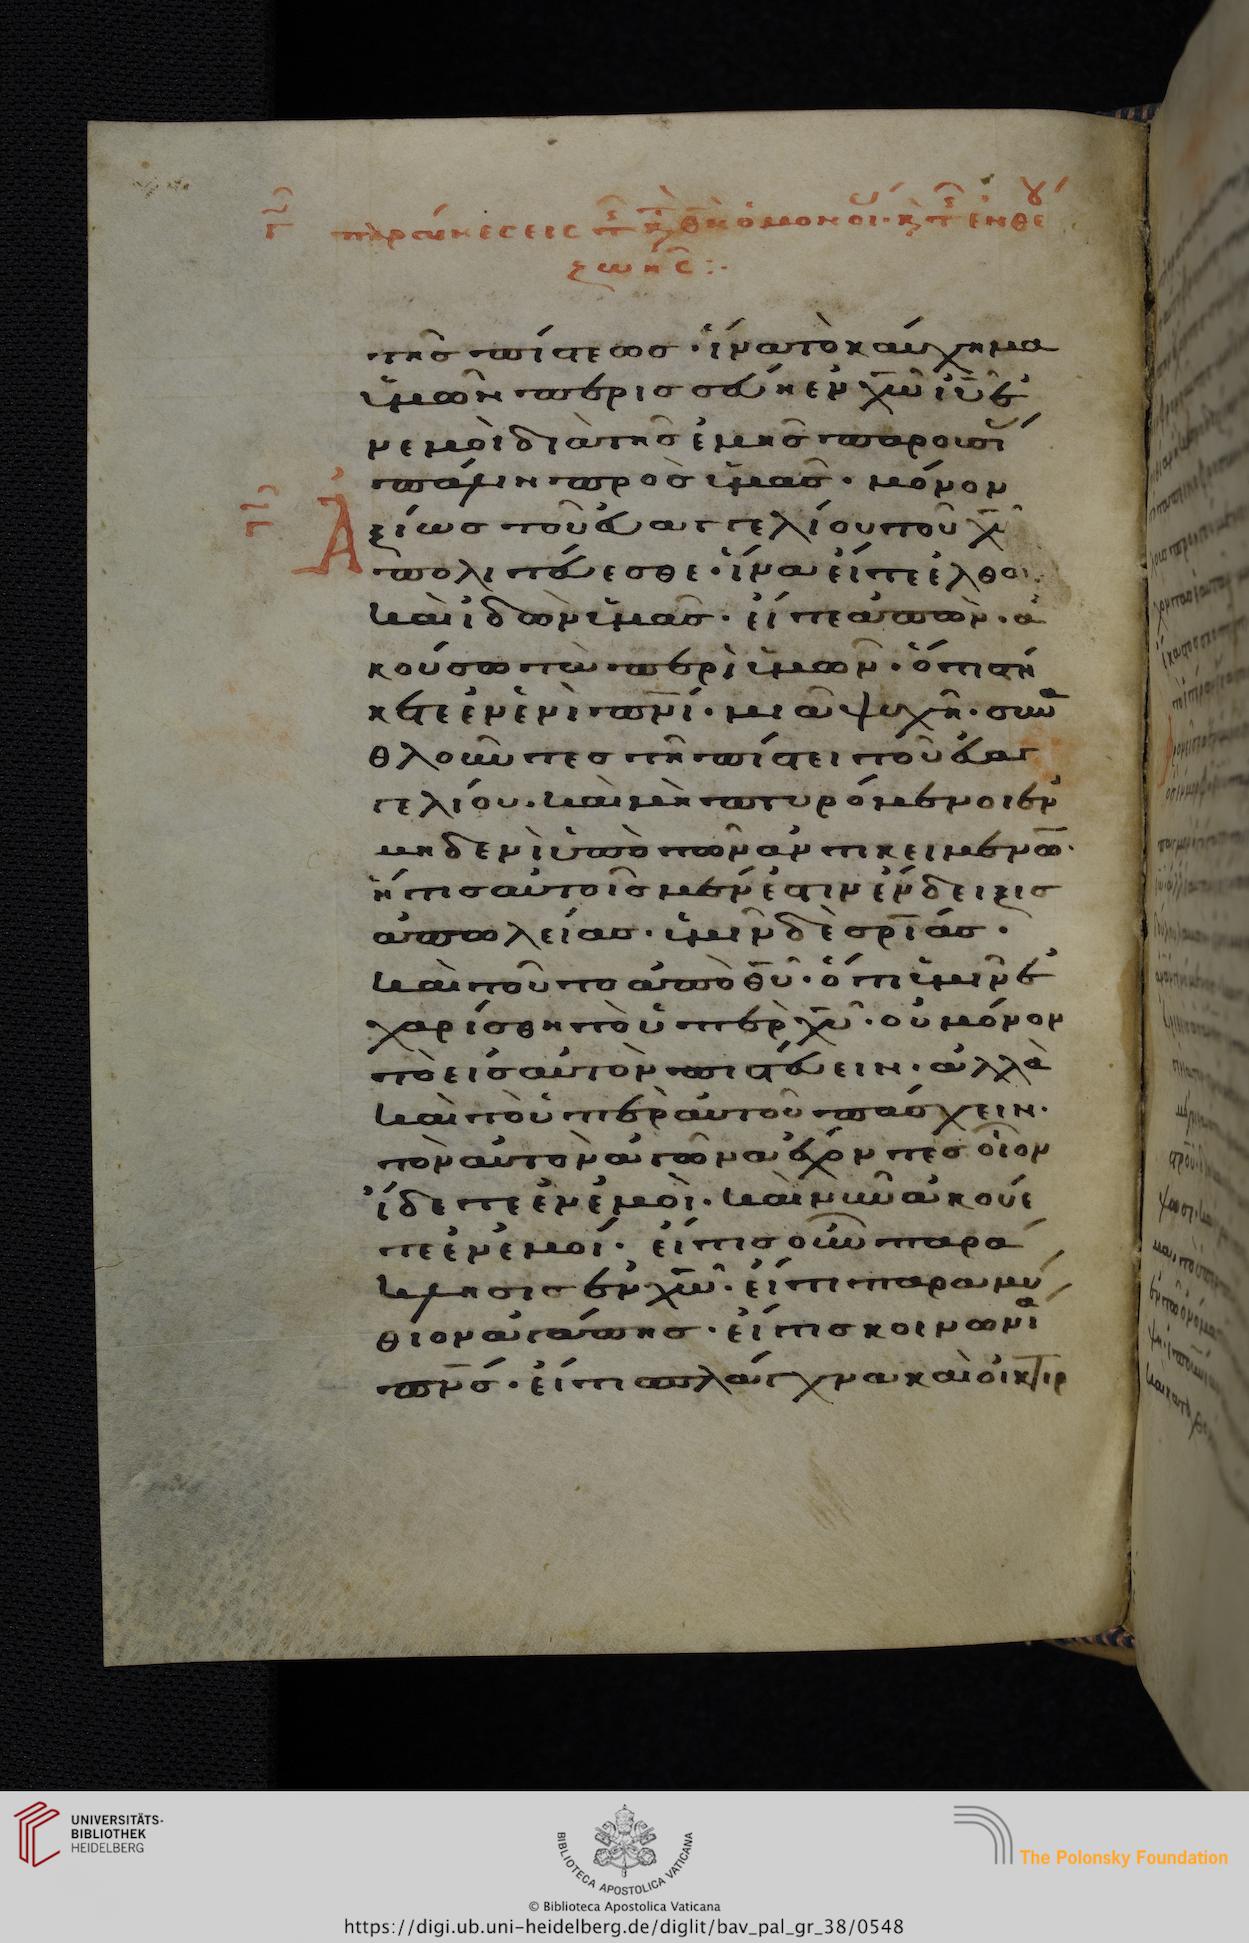 γ παραίνεσεις π τ κτ θν ὁμονοί· κ π ἐνθέου
ζωῆς :·
της πίστεως · ἵνα το καύχημα
ὑμῶν περισσεύη εν χω ιυ ἐ
ν εμοὶ διὰ της ἐμης παρουσί
πάλιν προς ὑμας · μόνον
Ἀξίως του ευαγγελίου του χυ
πολιτεύεσθε · ἵνα εἴτε ἐλθω
και ἰδὼν ὑμας · εἴτε ἀπὼν · ἀ
κούσω τὰ περὶ ὑμων · ὅτι στή
κετε ἐν ἑνὶ πνι · μια ψυχη · συνα
θλουντες τη πίστει του ευαγ
γελίου · και μὴ πτυρόμενοι ἐν
μηδενὶ ὑπὸ των ἀντικειμενω ·
ἥτις αὐτοις μέν ἐστιν ἔνδειξις
ἀπωλείας · ὑμιν δὲ σριας ·
και τουτο ἀπὸ θυ · ὅτι ὑμιν ἐ
χαρίσθη τὸ ὑπὲρ χυ · οὐ μόνον
τὸ εἰς αὐτὸν πιστεύειν · ἀλλὰ
και τὸ ὑπὲρ αὐτου πάσχειν ·
τὸν αὐτὸν ἀγωνα ἔχοντες οἷον
ἴδετε ἐν ἐμοὶ · και νυν ἀκούε
τε ἐν ἐμοί · εἴ τις οὖν παρά
κλησις ἐν χω · εἴ τι παραμύ
θιον ἀγάπης · εἴ τις κοινωνία
πνς · εἴ τι σπλάγχνα και οἰκτιρ
UNIVERSITÄTS-
BIBLIOTHEK
HEIDELBERG
BIBLIOTECA APOSTOLICA VATICANA
The Polonsky Foundation
© Biblioteca Apostolica Vaticana
https://digi.ub.uni-heidelberg.de/diglit/bav_pal_gr_38/0548